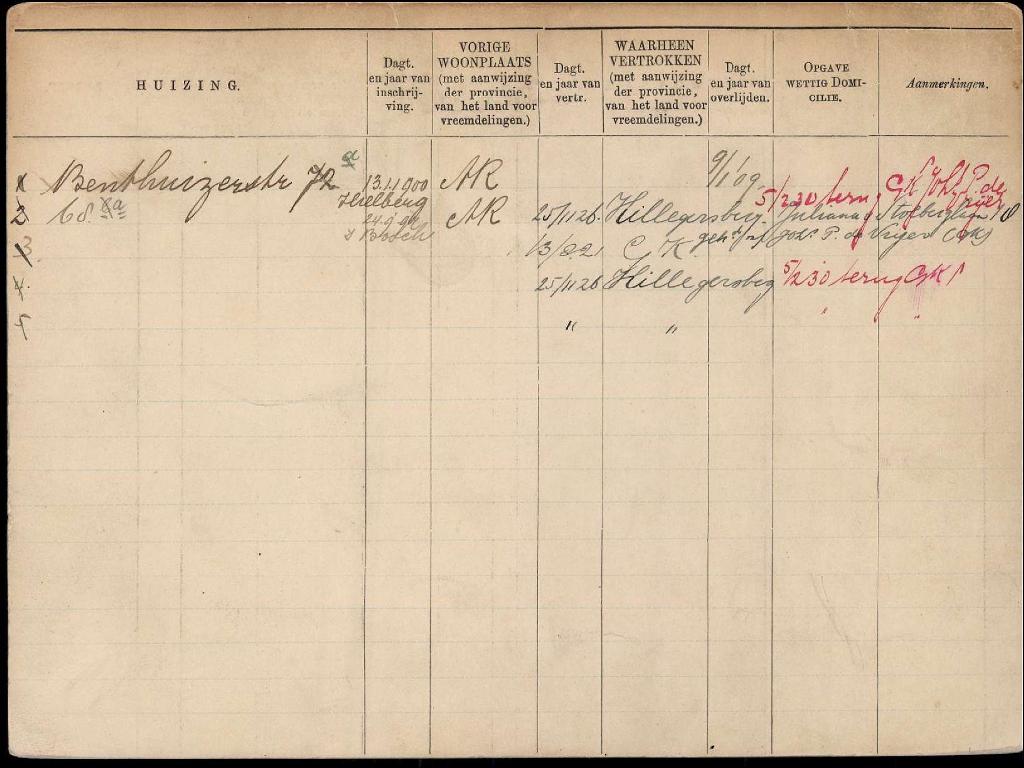 HUIZING.
Dagt. en jaar van inschrij-ving.
VORIGE WOONPLAATS (met aanwijzing der provincie, van het land voor vreemdelingen.)
Dagt. en jaar van vertr.
WAARHEEN VERTROKKEN (met aanwijzing der provincie, van het land voor vreemdelingen.)
Dagt. en jaar van overlijden.
OPGAVE WETTIG DOMI-CILIE.
Aanmerkingen.
1 Benthuizerstr 72 a 13.1.1900 AK 9/1 '09
5/2 30 terug GK Joh. P. de Vrijer
2 68 AK 25/11 26 Hillegersberg Juliana v Stolberglaan
s Bosch
3 13/8 21 GK geh. Joh. P. de Vrijer (OK)
4 25/11 26 Hillegersberg 5/2 30 terug GK 1
5 " " " "